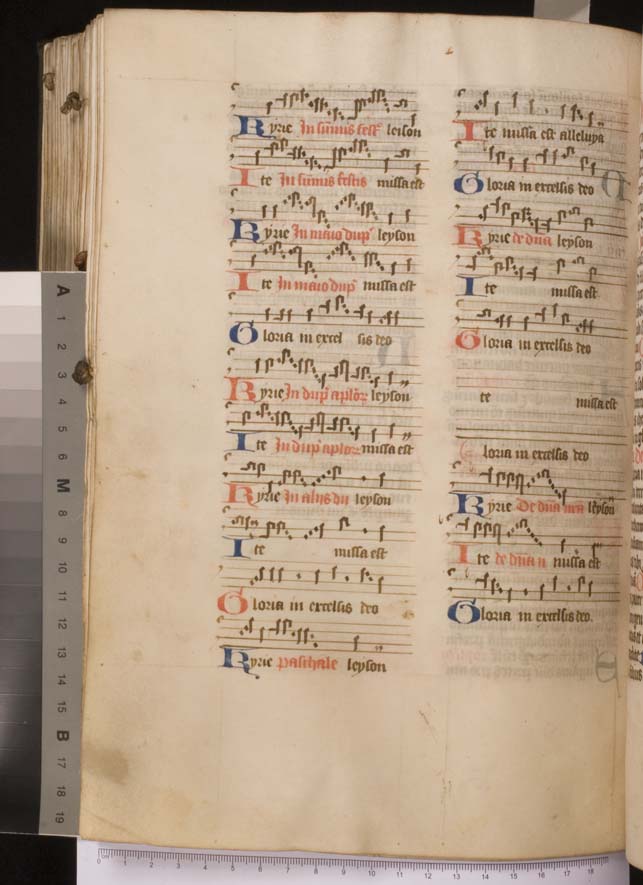 Kyrie In sūmis fest leison
Ite In sūmis festis missa est
Kyrie In maio dup leyson
Ite In maio dup missa est
Gloria in excel sis deo
Kyrie In dup aplōꝝ leyson
Ite In dup aploꝝ missa est
Kyrie In alijs du leyson
Ite missa est
Gloria in excelsis deo
Kyrie paschale leyson
Ite missa est alleluya
Gloria in excelsis deo
Kyrie de dn̄a leyson
Ite missa est
Gloria in excelsis deo
te missa est
Gloria in excelsis deo
Kyrie De dn̄a leyson
Ite de dn̄a n missa est
Gloria in excelsis deo.
A
1
2
3
4
5
6
M
8
9
10
11
12
13
14
15
B
17
18
19
0 1 2 3 4 5 6 7 8 9 10 11 12 13 14 15 16 17 18